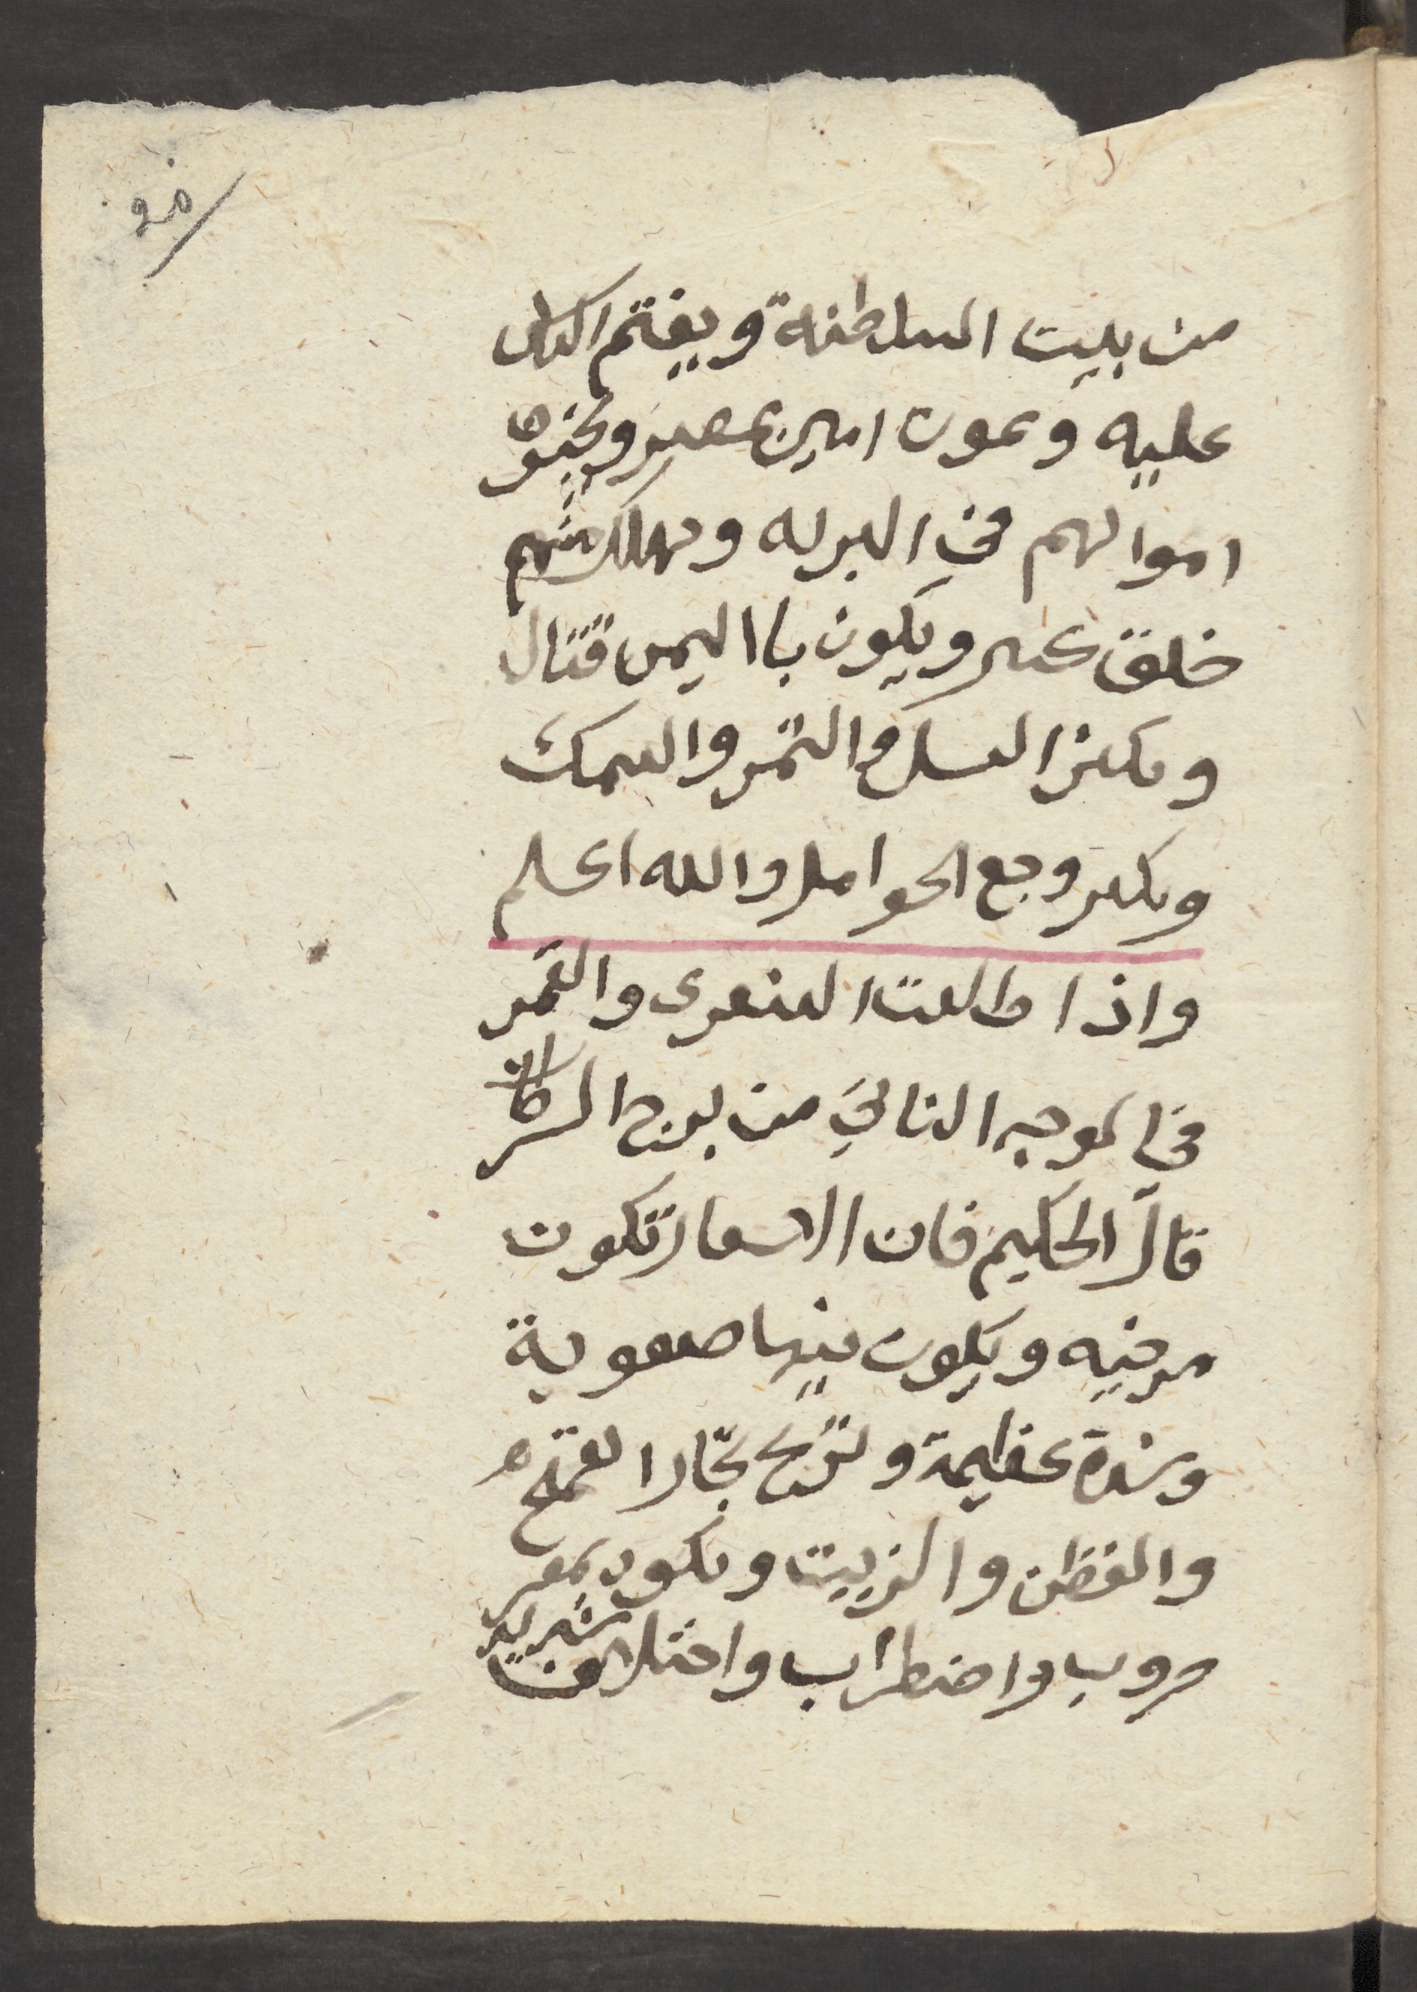 من بيت السلطنة ويغتم الناس
عليه ويموت امير بمصر
اموالهم في البريه ويهلك منهم
خلق كثير ويكون بااليمن قتال
ويكثر العسل والتمر والسمك
ويكثر وجع الحوامل والله اعلم
واذا طلعت الشعرى والقمر
في الوجه الثاني من برج السرطان
قال الحكيم فان الاسعار تكون
مرخيه ويكون فيها صعوبة
وشدة عظيمة وتربح تجار القمح
والقطن والزيت ويكون بمصر
حروب واضطراب واختلاف شديد